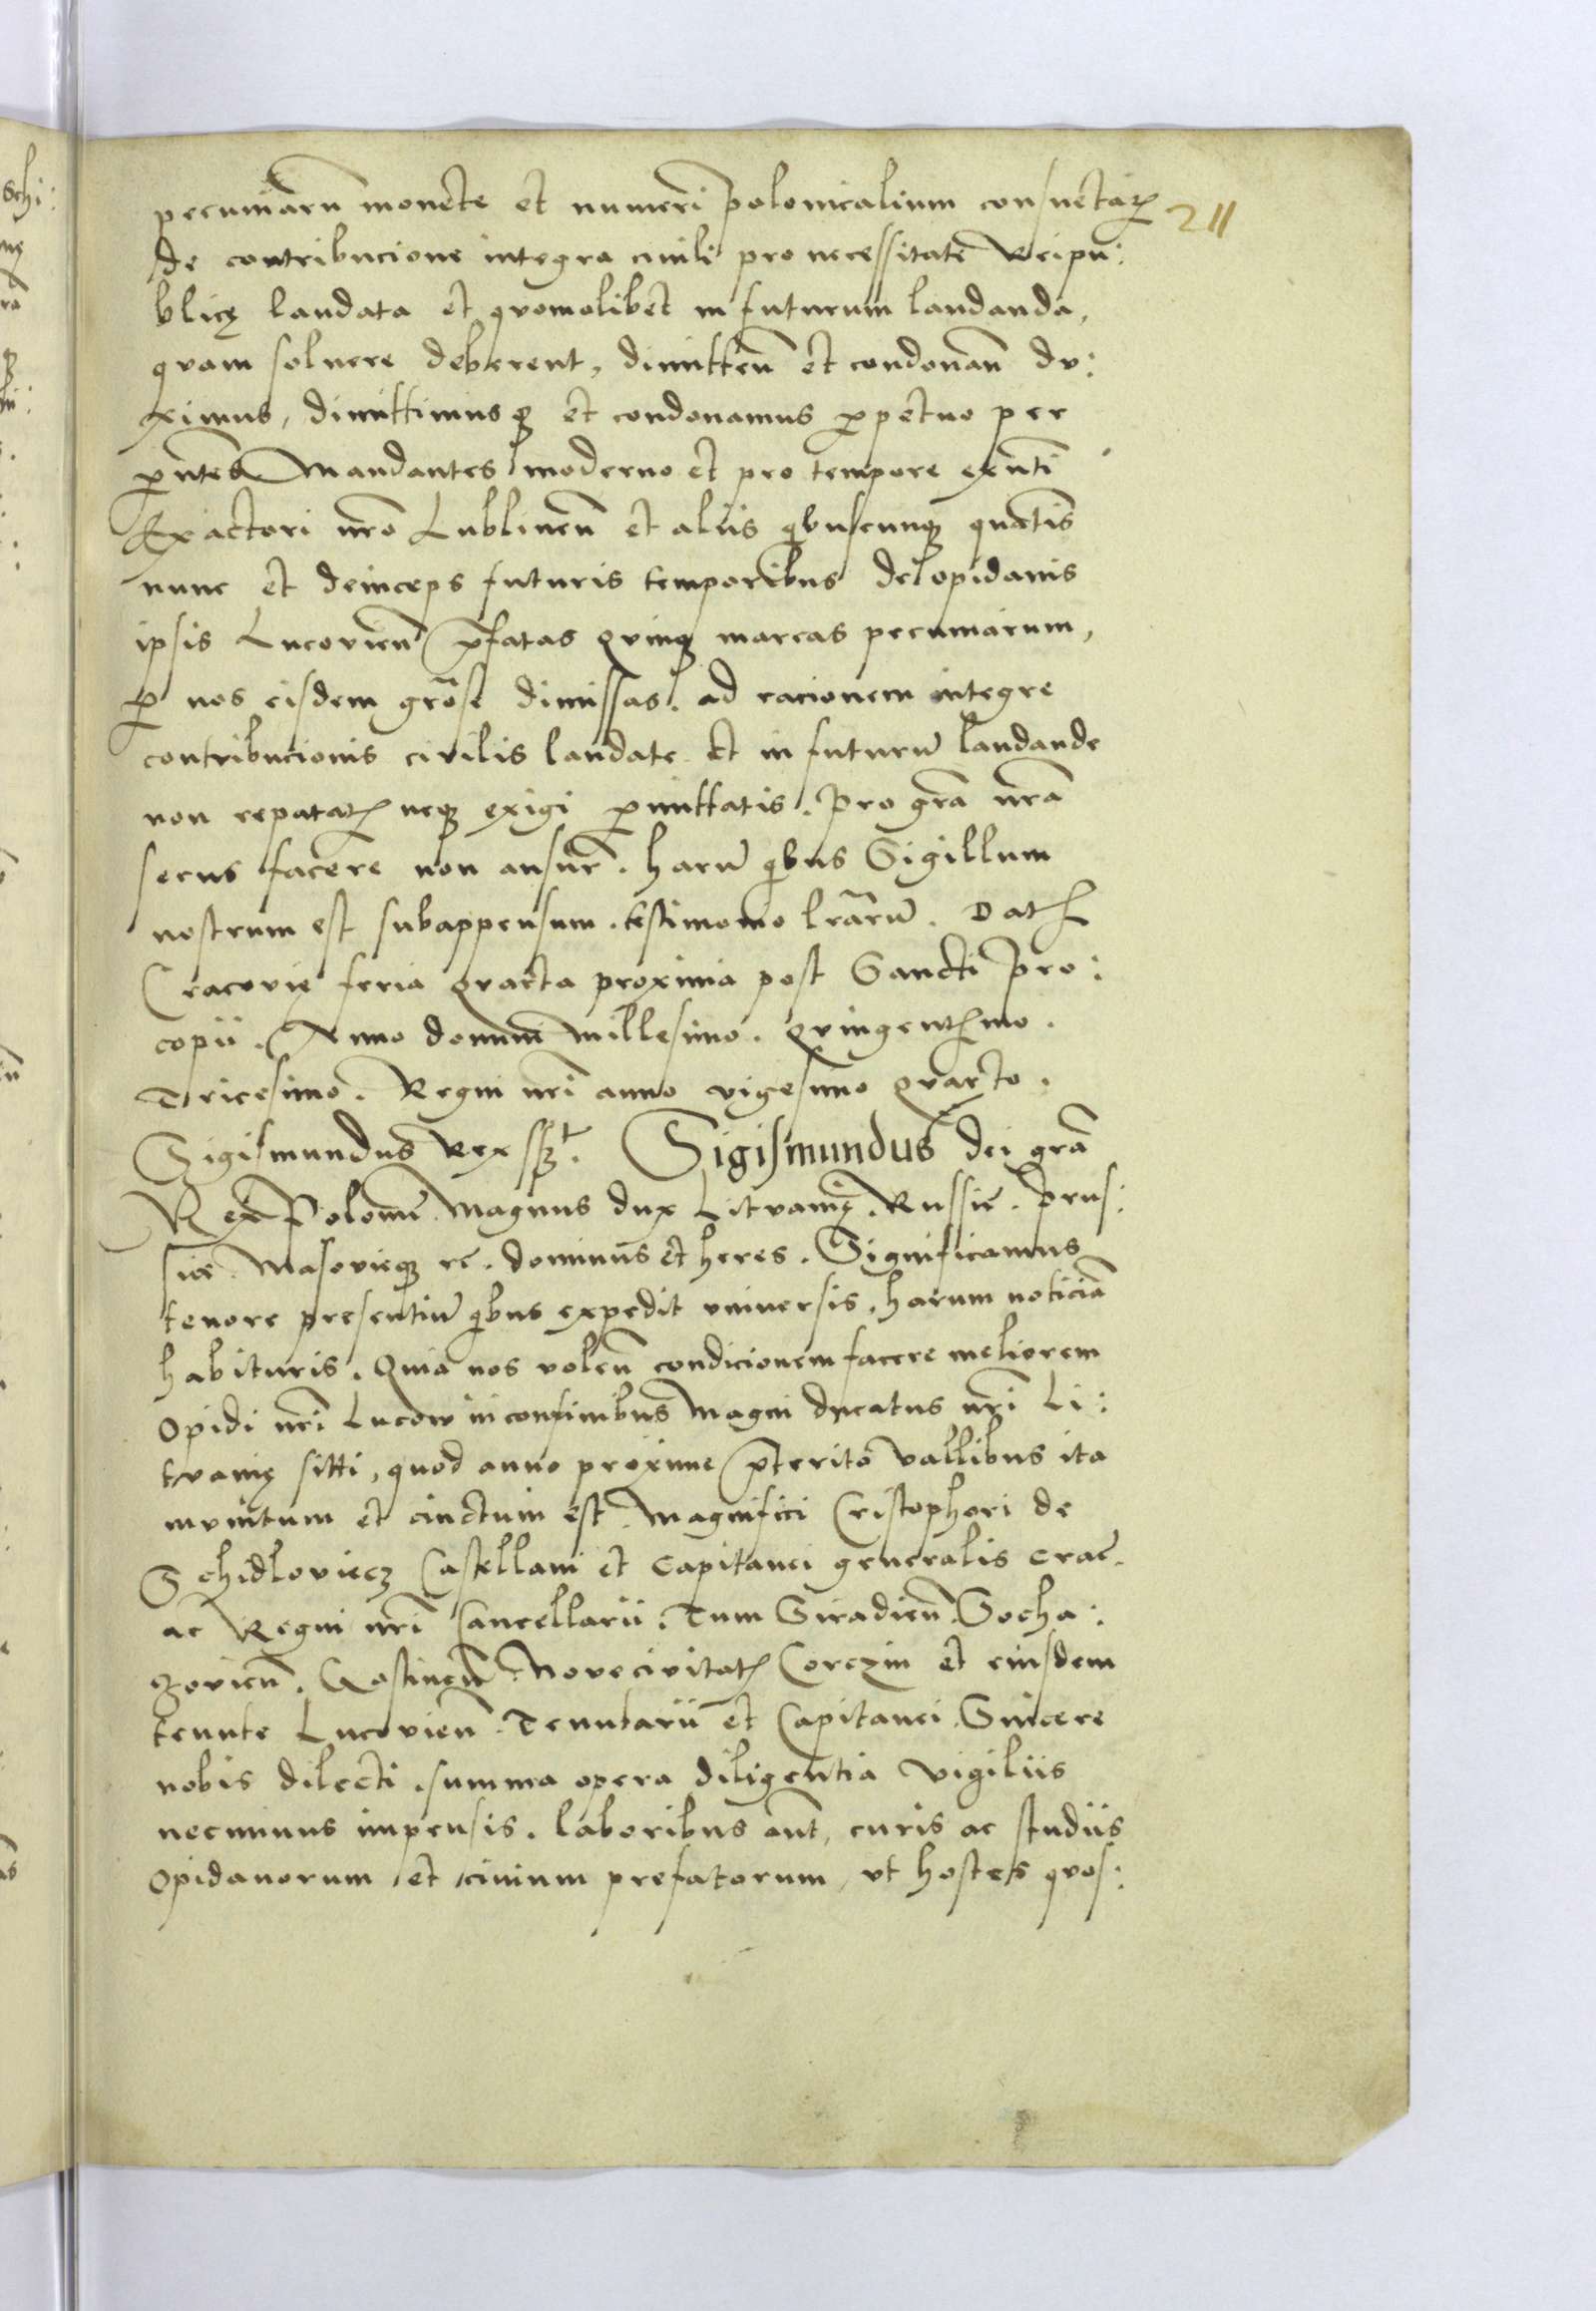 pecuniarū monete et numeri polonicalium consuetaꝝ 211
de contribucione integra ciuili pro necessitate Reipu:
blicę laudata et quomolibet in futurum laudanda,
quam soluere deberent, dimitteñ et condonañ du:
ximus, dimittimusqꝫ et condonamus ꝑpetuo per
p̄ntes Mandantes moderno et pro tempore exn̄ti
Exactori nr̄o Lublineñ et aliis qibuscunqꝫ quatīs
nunc et deinceps futuris temporibus de opidanis
ipsis Lucovieñ p̄fatas quinqꝫ marcas pecuniarum,
ꝑ nos eisdem grōse dimissas. ad racionem integre
contribucionis civilis laudate et in futurū laudande
non repetatꝭ neqꝫ exigi ꝑmittatis. pro gr̄a nr̄a
secus facere non ansur̄. harū qibus Sigillum
nostrum est subappensum. testimonio lr̄arū. Datꝭ
Cracovie feria quarta proxima post Sancti pro:
copii. Anno domini Millesimo. quingentꝭmo.
Tricesimo. Regni nr̄i anno vigesimo quarto.
Sigismundus Rex sszt. Sigismundus dei gr̄a
Rex Polonię. Magnus dux Lituanię. Russię. prus:
sie. Masovieqꝫ rc̄. dominus et heres. Significamus
tenore presentiū qibus expedit vniversis. harum noticiā
habituris. Quia nos voleñ condicionem facere meliorem
Opidi nr̄i Lucow in confinibus Magni ducatus nr̄i Li:
tuanię sitti, quod anno proxime p̄terito vallibus ita
munitum et cinctum est. Magnifici Cristophori de
Schidloviecz Castellani et Capitanei generalis crac̄.
ac Regni nr̄i Cancellarii. Tum Siradieñ. Socha:
czovieñ. Gostineñ. Novecivitatꝭ Corczin et eiusdem
tenute Lucovieñ. Tenutarii et Capitanei. Sincere
nobis dilecti. summa opera diligentia vigiliis
necminus impensis. laboribus aūt, curis ac studiis
Opidanorum et civium prefatorum, vt hostes quos: